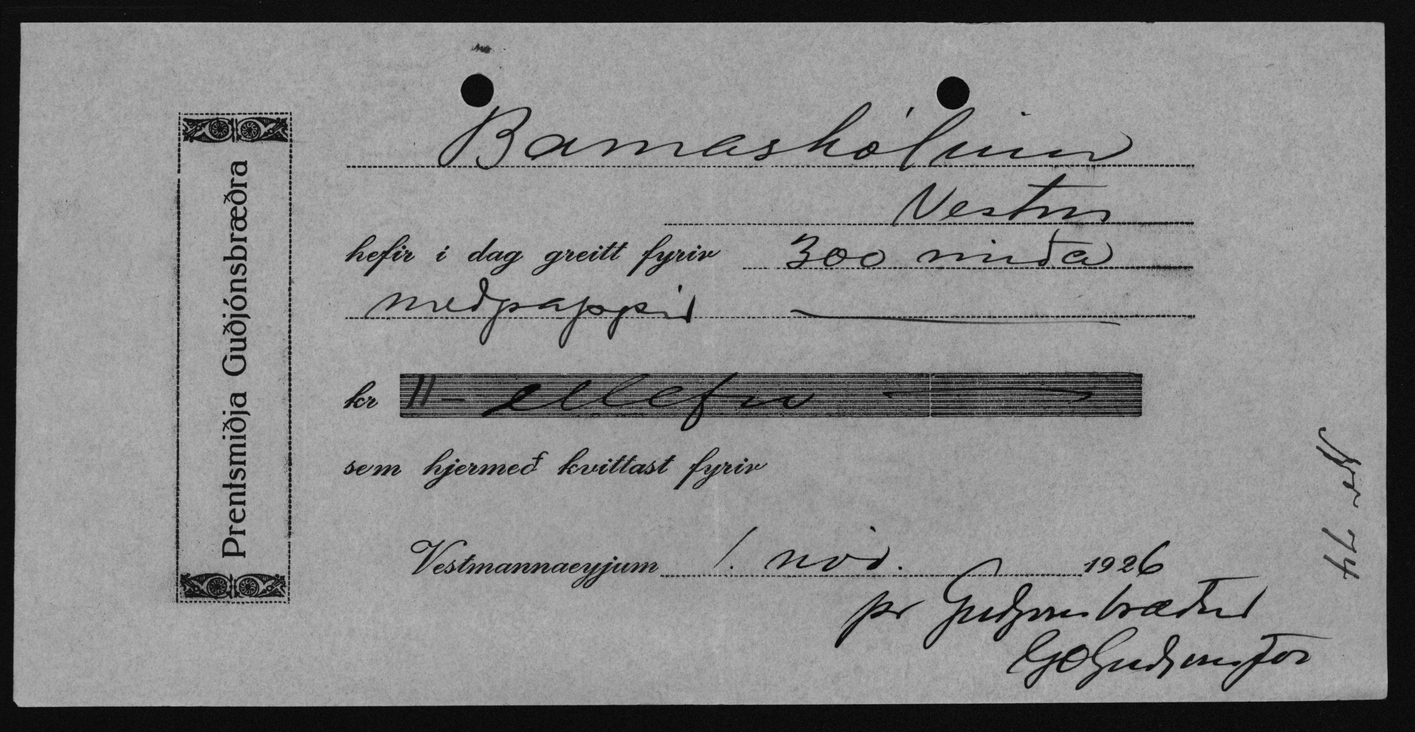 Prentsmiðja Guðjónsbræðra
Barnaskólinn
Vestm
hefir í dag greitt fyrir 300 miða
með pappír
kr 11- ellefu
sem hjermeð kvittast fyrir
Vestmannaeyjum 1. nóv. 1926
pr Guðjónsbræður
GOGuðjónsson